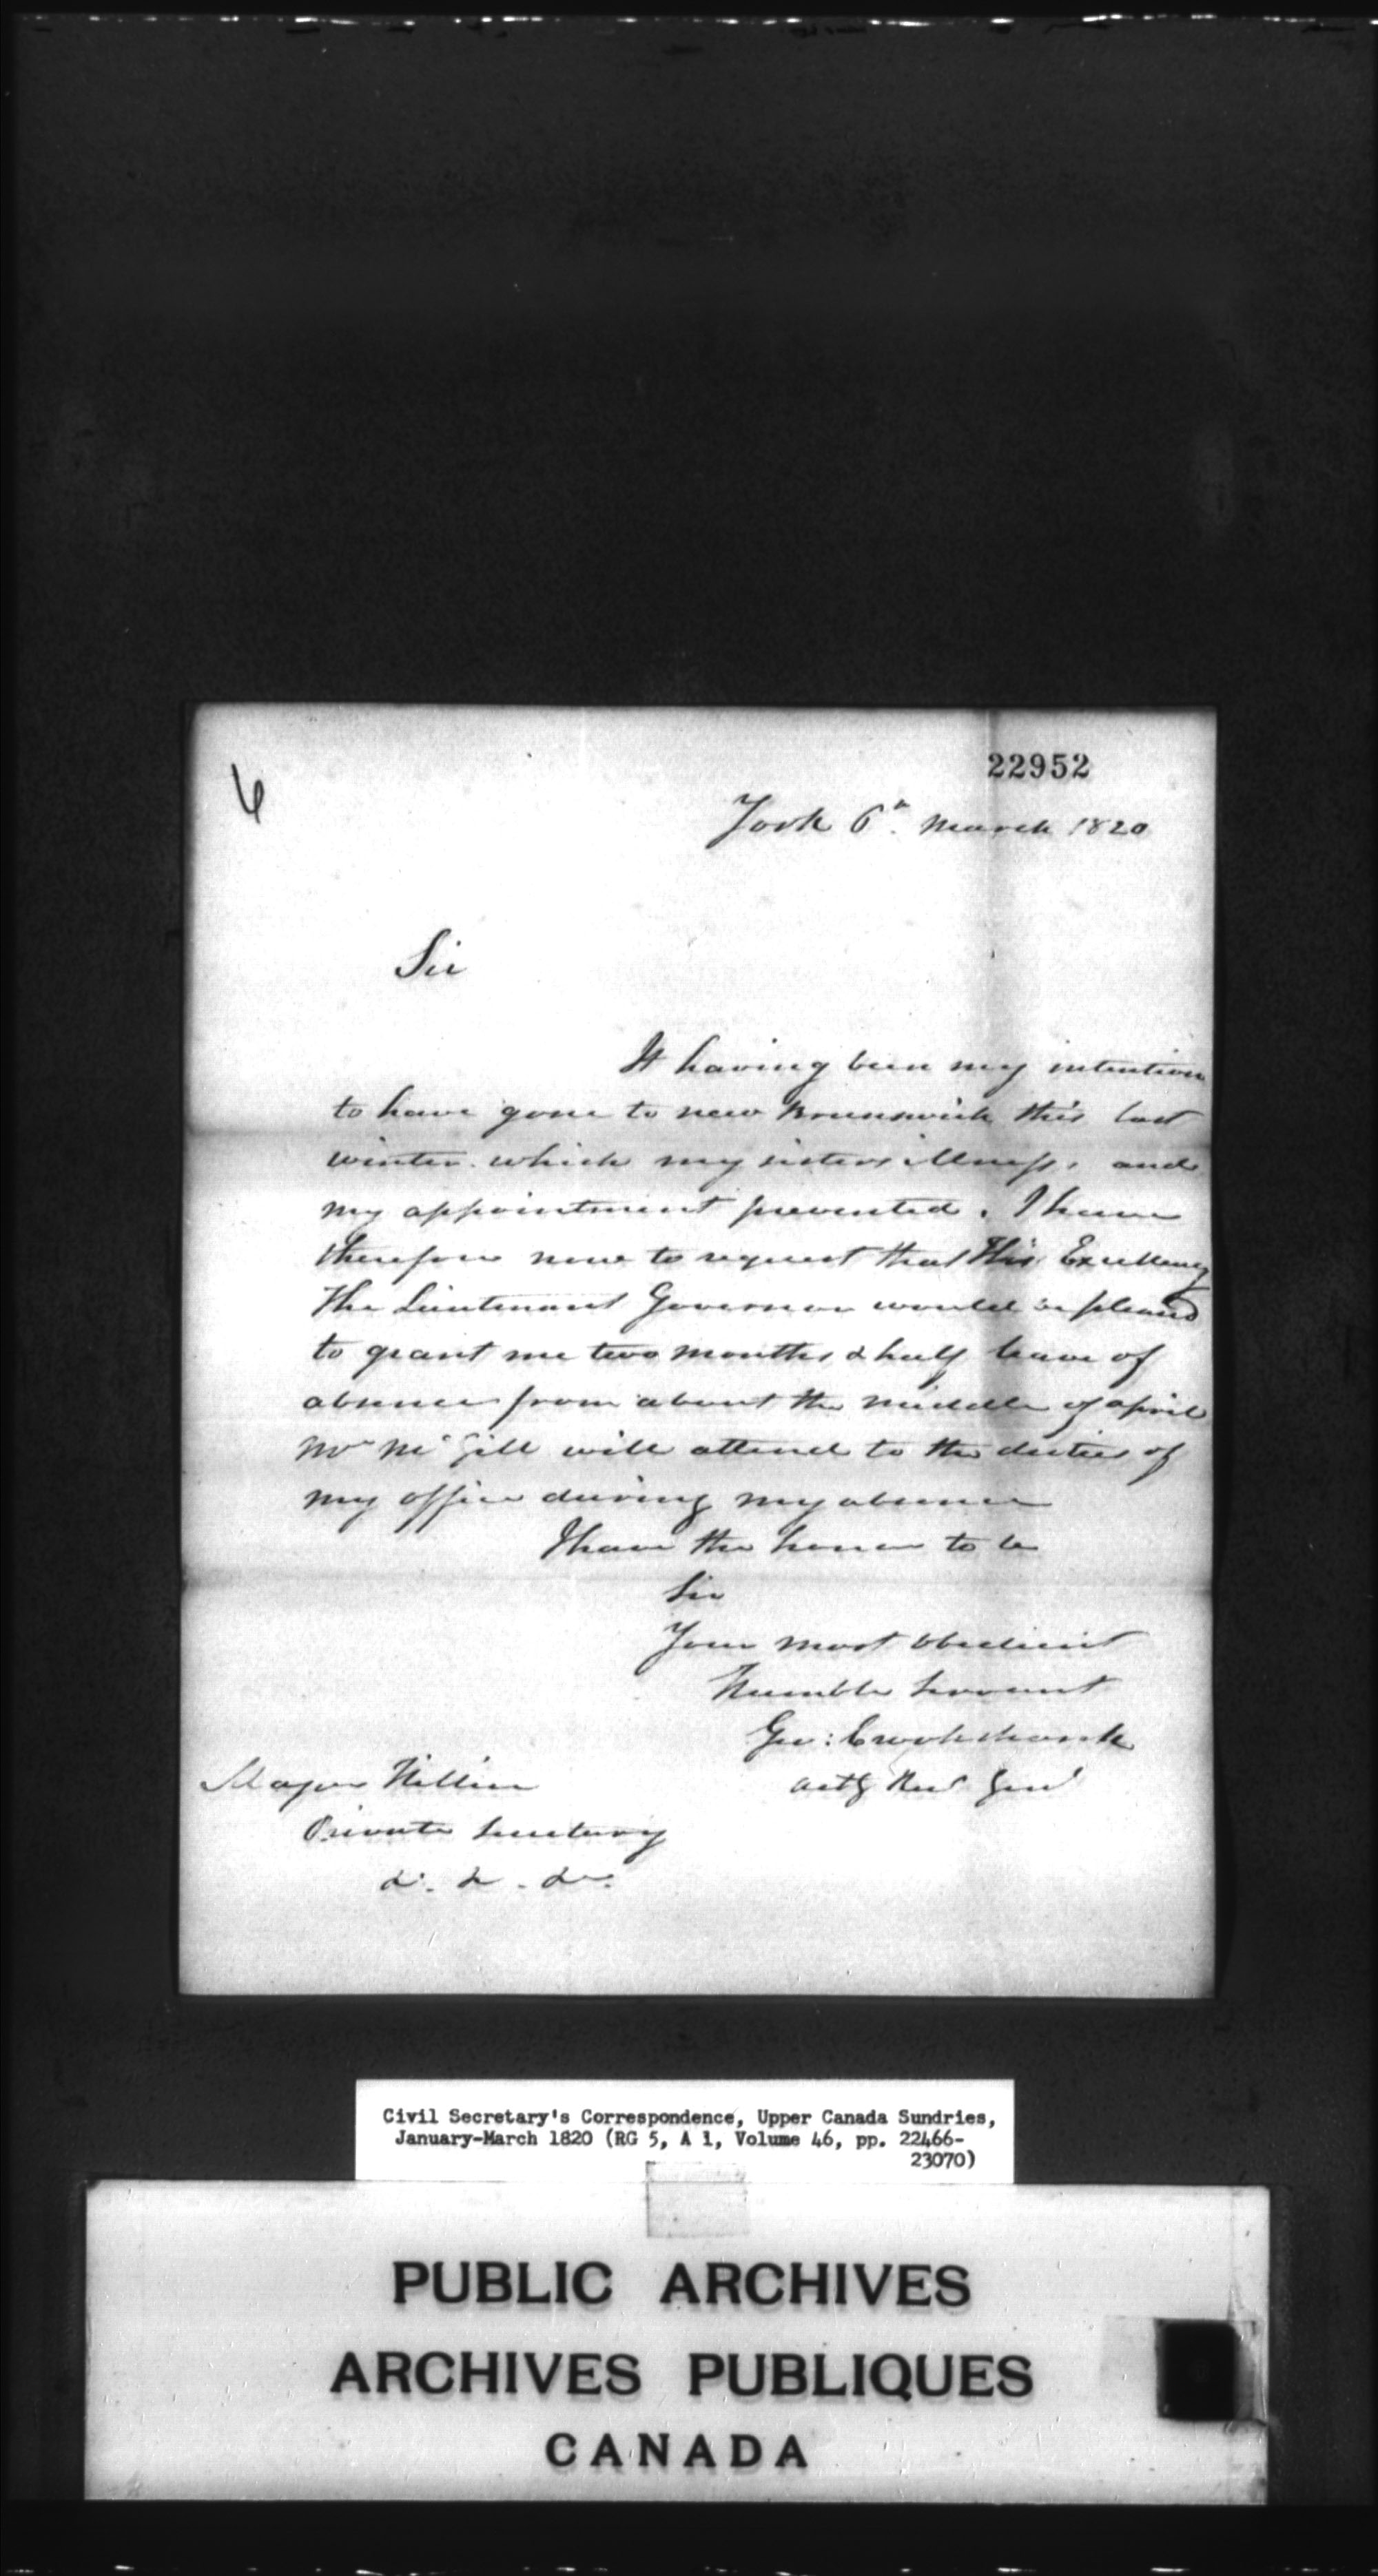 22952
6
York 6th. March 1820
Sir
It having been my intention
to have gone to new Brunswick this last
winter which my sisters illness, and
my appointment prevented. I have
therefore now to request that His Excellency
The Lieutenant Governor would be pleased
to grant me two months & half leave of
absence from about the middle of april
Mr McGill will attend to the duties of
my office during my absence
I have the honor to be
Sir
Your most obedient
Humble Servant
Geo: Crookshank
actg Recr Genl
Major Hillier
Private Secretary
&c. &c. &c.
Civil Secretary's Correspondence, Upper Canada Sundries,
January-March 1820 (RG 5, A 1, Volume 46, pp. 22466-
23070)
PUBLIC ARCHIVES
ARCHIVES PUBLIQUES
CANADA